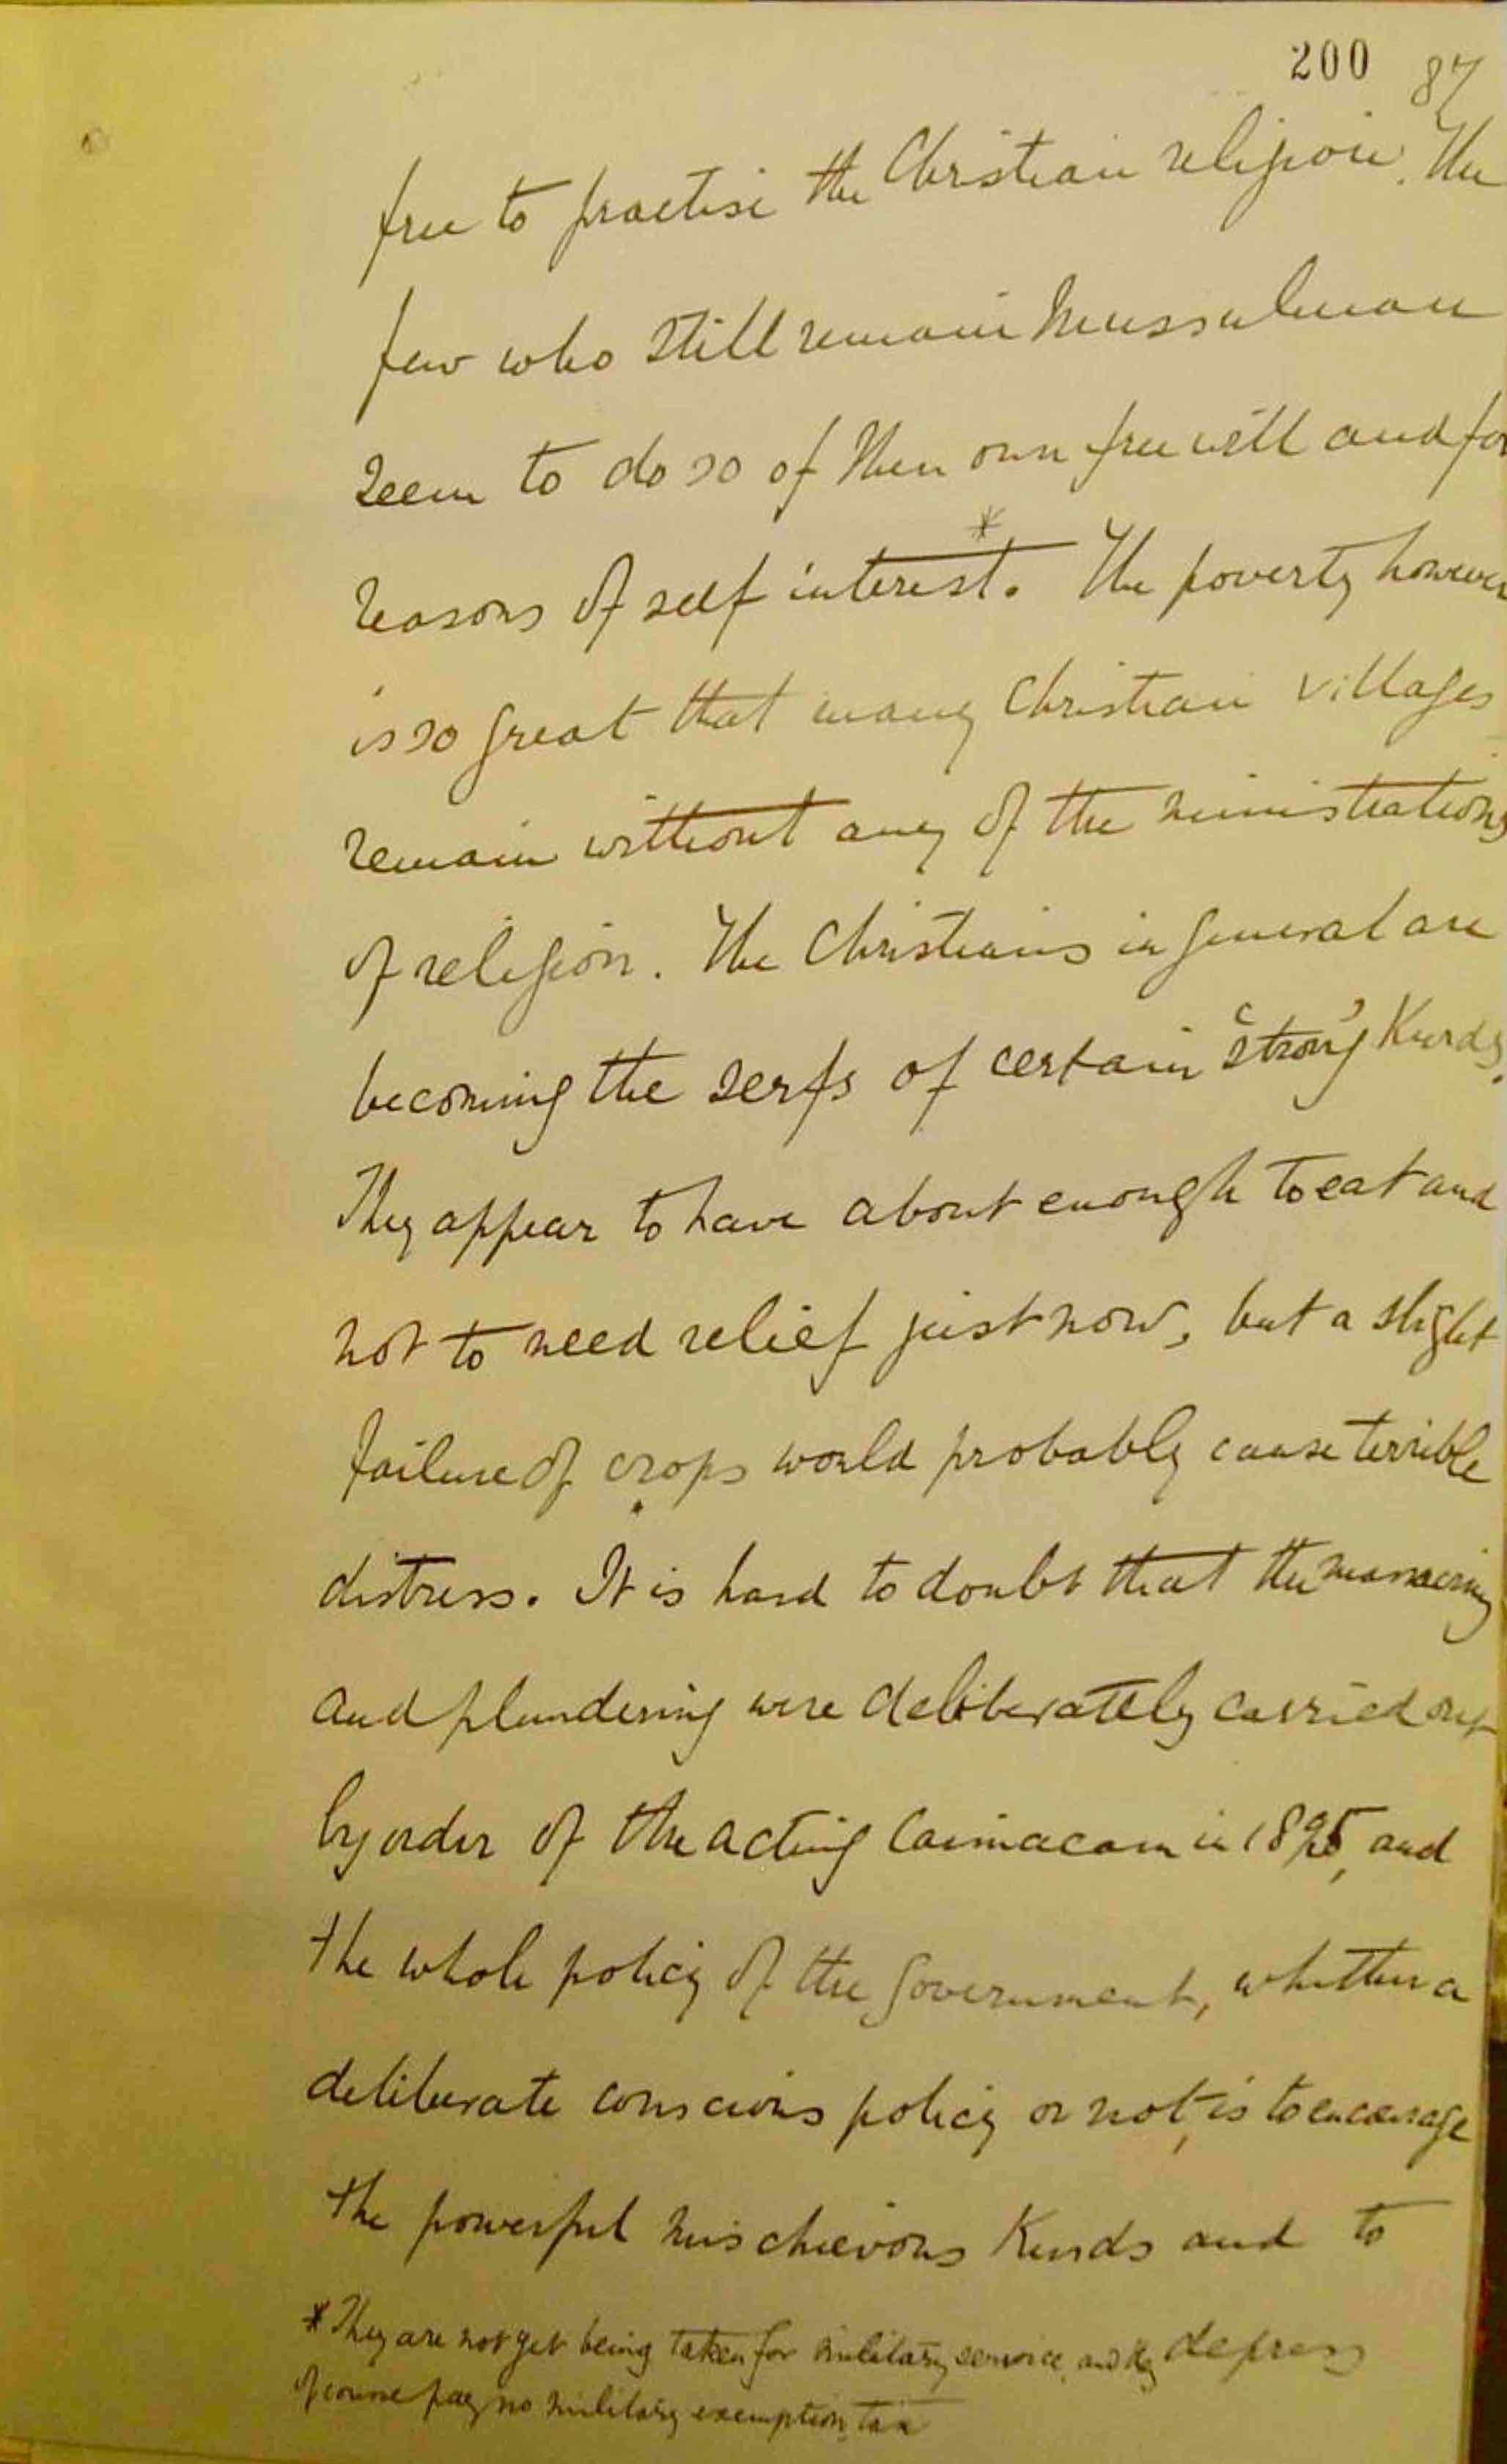 200 87
free to practise the Christian religion. The
few who still remain Mussulman
seem to do so of their own free will and for
reasons of self interest.* The poverty however
is so great that many Christian villages
remain without any of the ministrations
of religion. The Christians in general are
becoming the serfs of certain 'strong' Kurds.
They appear to have about enough to eat and
not to need relief just now, but a slight
failure of crops would probably cause terrible
distress. It is hard to doubt that the massacring
and plundering were deliberately carried out
by order of the acting Caimacam in 1895, and
the whole policy of the Government, whether a
deliberate conscious policy or not, is to encourage
the powerful mischievous Kurds and to
depress
* They are not yet being taken for military service, and they
of course pay no military exemption tax